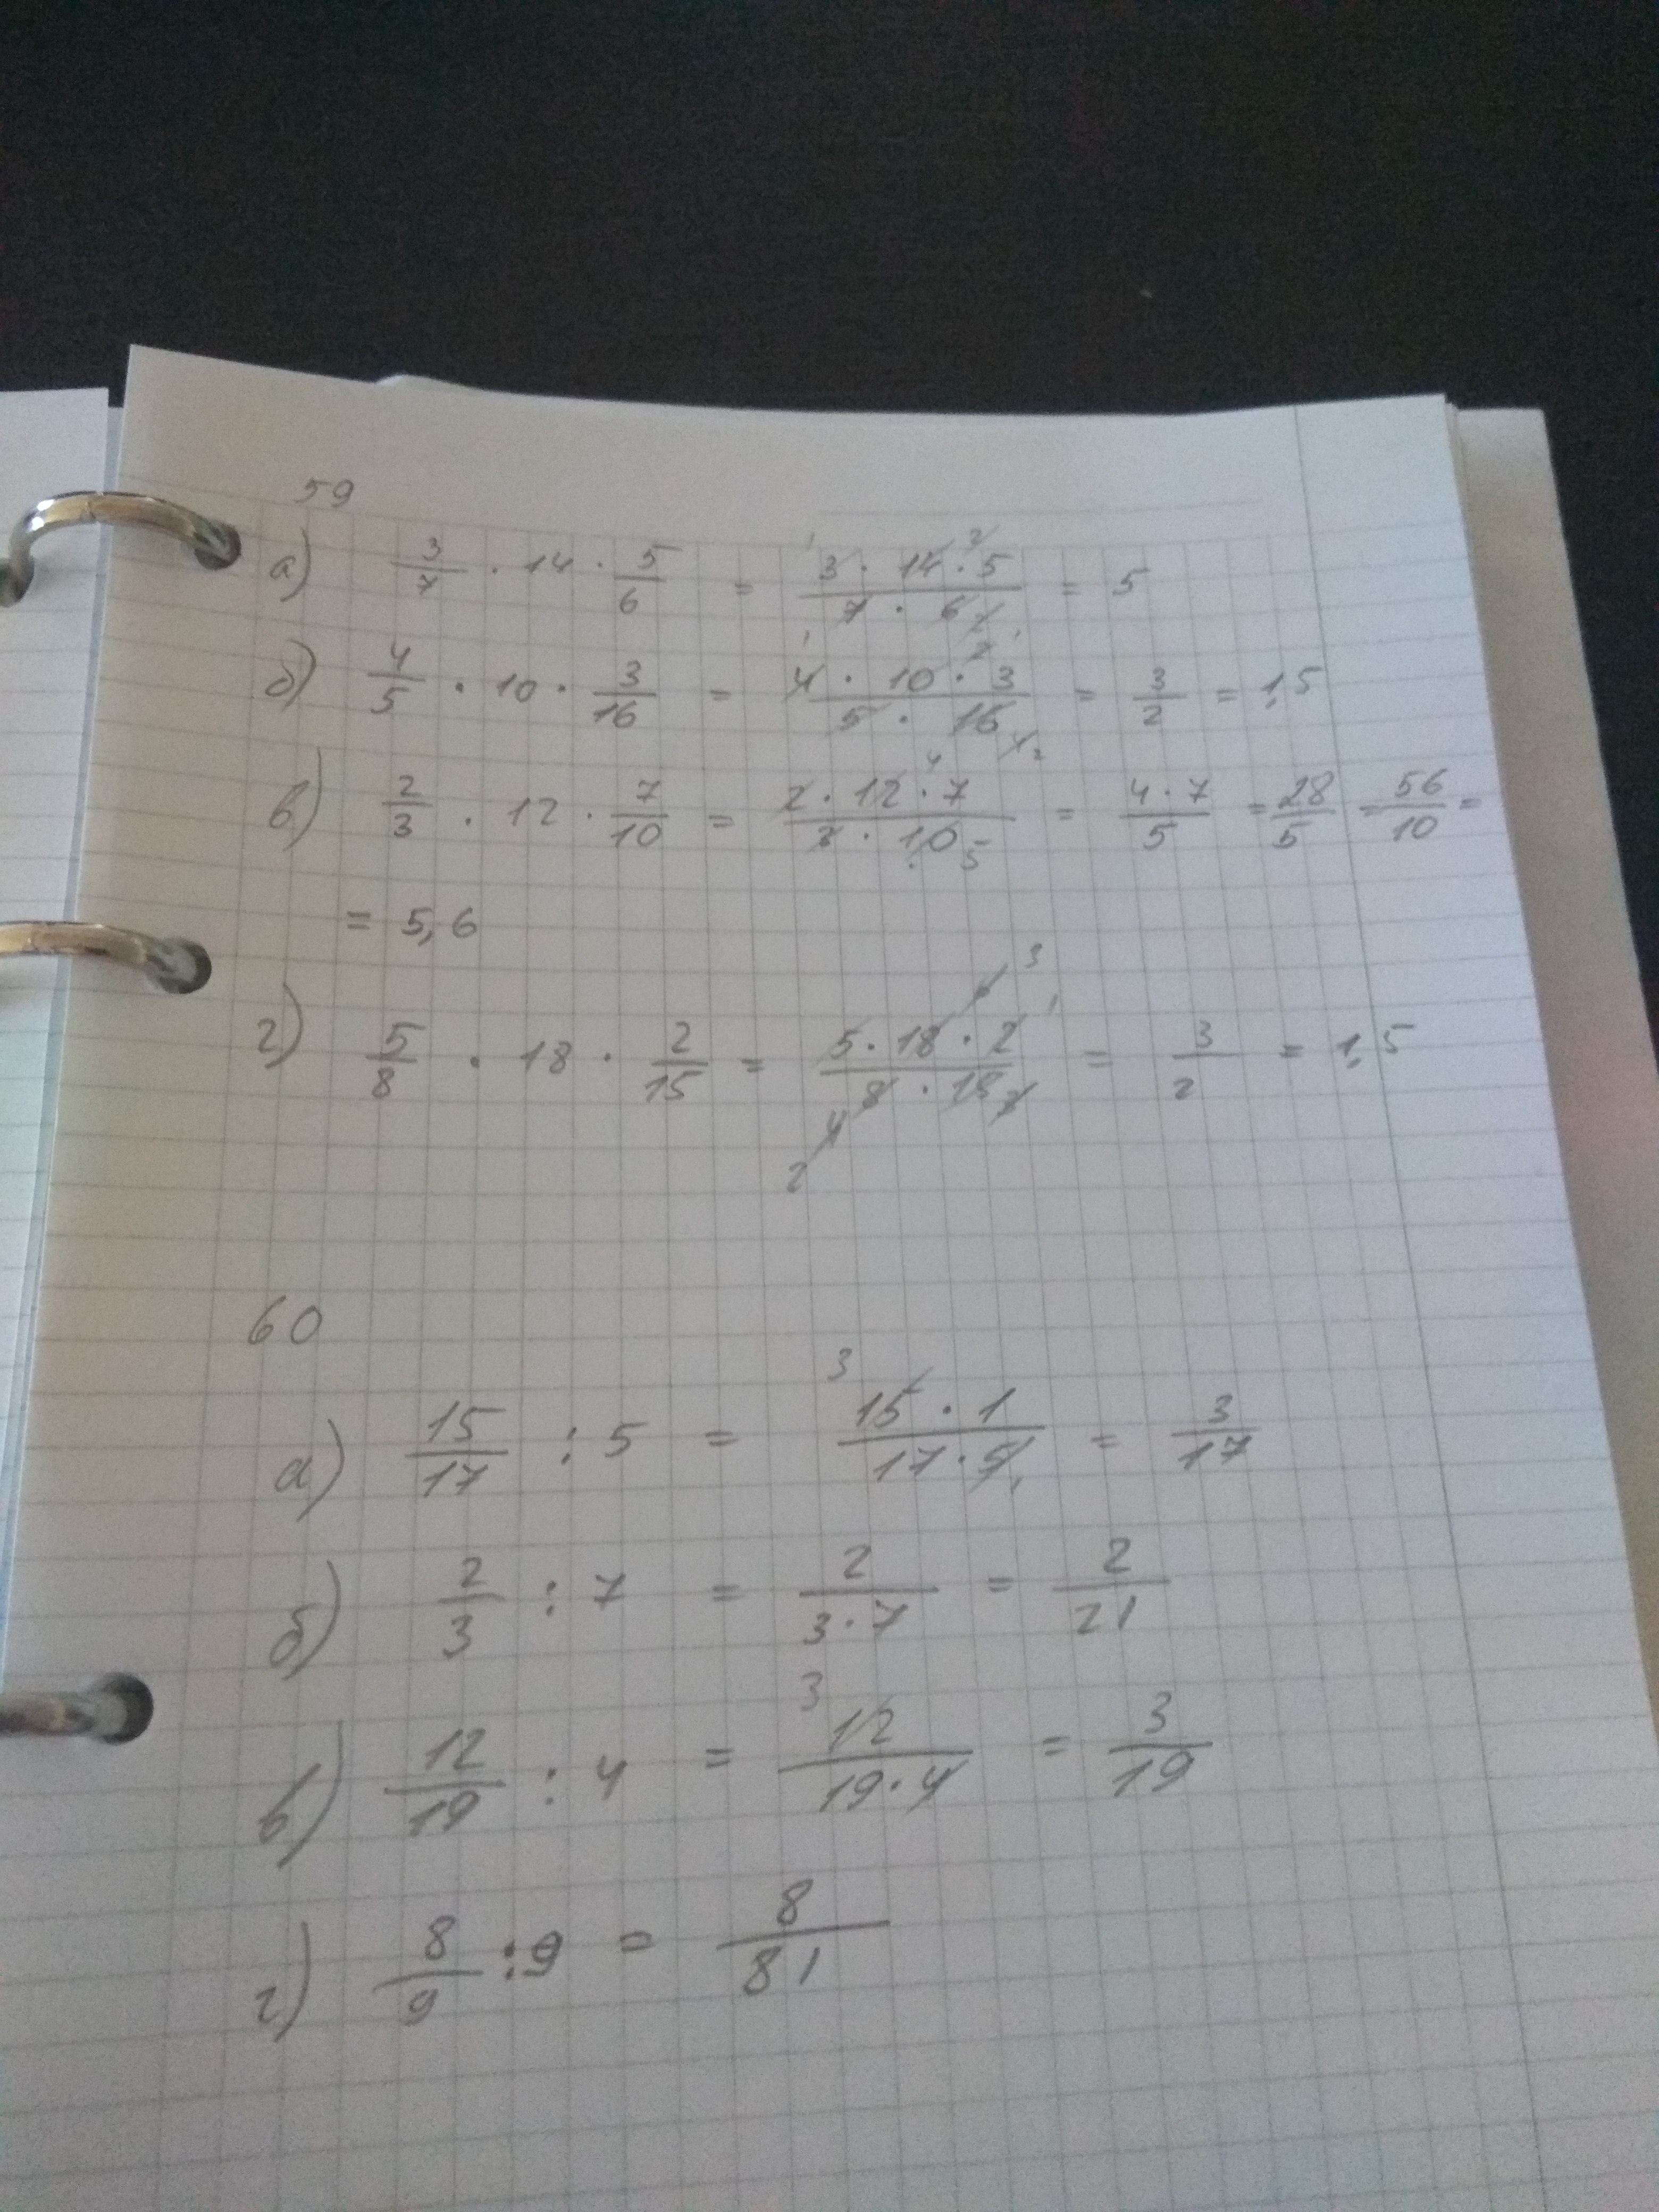 59
а) 3/7 · 14 · 5/6 = 3 · 14 · 5 / 7 · 6 = 5
б) 4/5 · 10 · 3/16 = 4 · 10 · 3 / 5 · 16 = 3/2 = 1,5
в) 2/3 · 12 · 7/10 = 2 · 12 · 7 / 3 · 10 = 4 · 7 / 5 = 28/5 = 56/10 =
= 5,6
г) 5/8 · 18 · 2/15 = 5 · 18 · 2 / 8 · 15 = 3/2 = 1,5
60
а) 15/17 : 5 = 15 · 1 / 17 · 5 = 3/17
б) 2/3 : 7 = 2 / 3 · 7 = 2/21
в) 12/19 : 4 = 12 / 19 · 4 = 3/19
г) 8/9 : 9 = 8/81